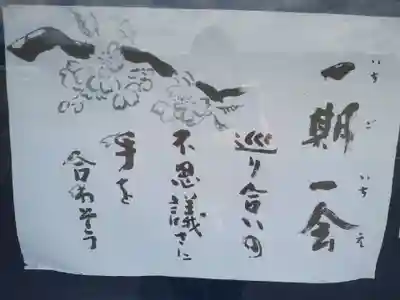 いちごいちえ
一期一会
巡り合いの
不思議さに
手を
合わそう